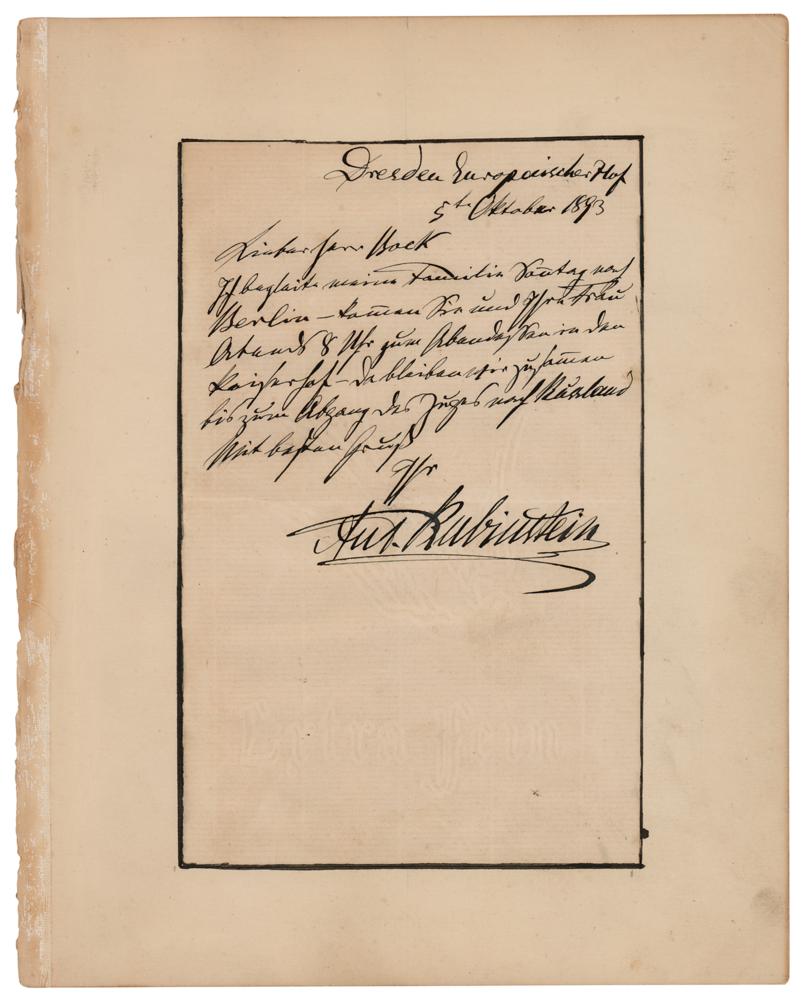 Dresden Europaischer Hof
5te Oktober 1893
Lieber Herr Bock
Ich begleite meine Familie Sonntag nach
Berlin – kommen Sie und Ihre Frau
Abends 8 Uhr zum Abendessen in den
Kaiserhof – da bleiben wir zusammen
bis zum Abgang des Zuges nach Russland
Mit besten Gruß
Ihr
Ant. Rubinstein
Extra Fein